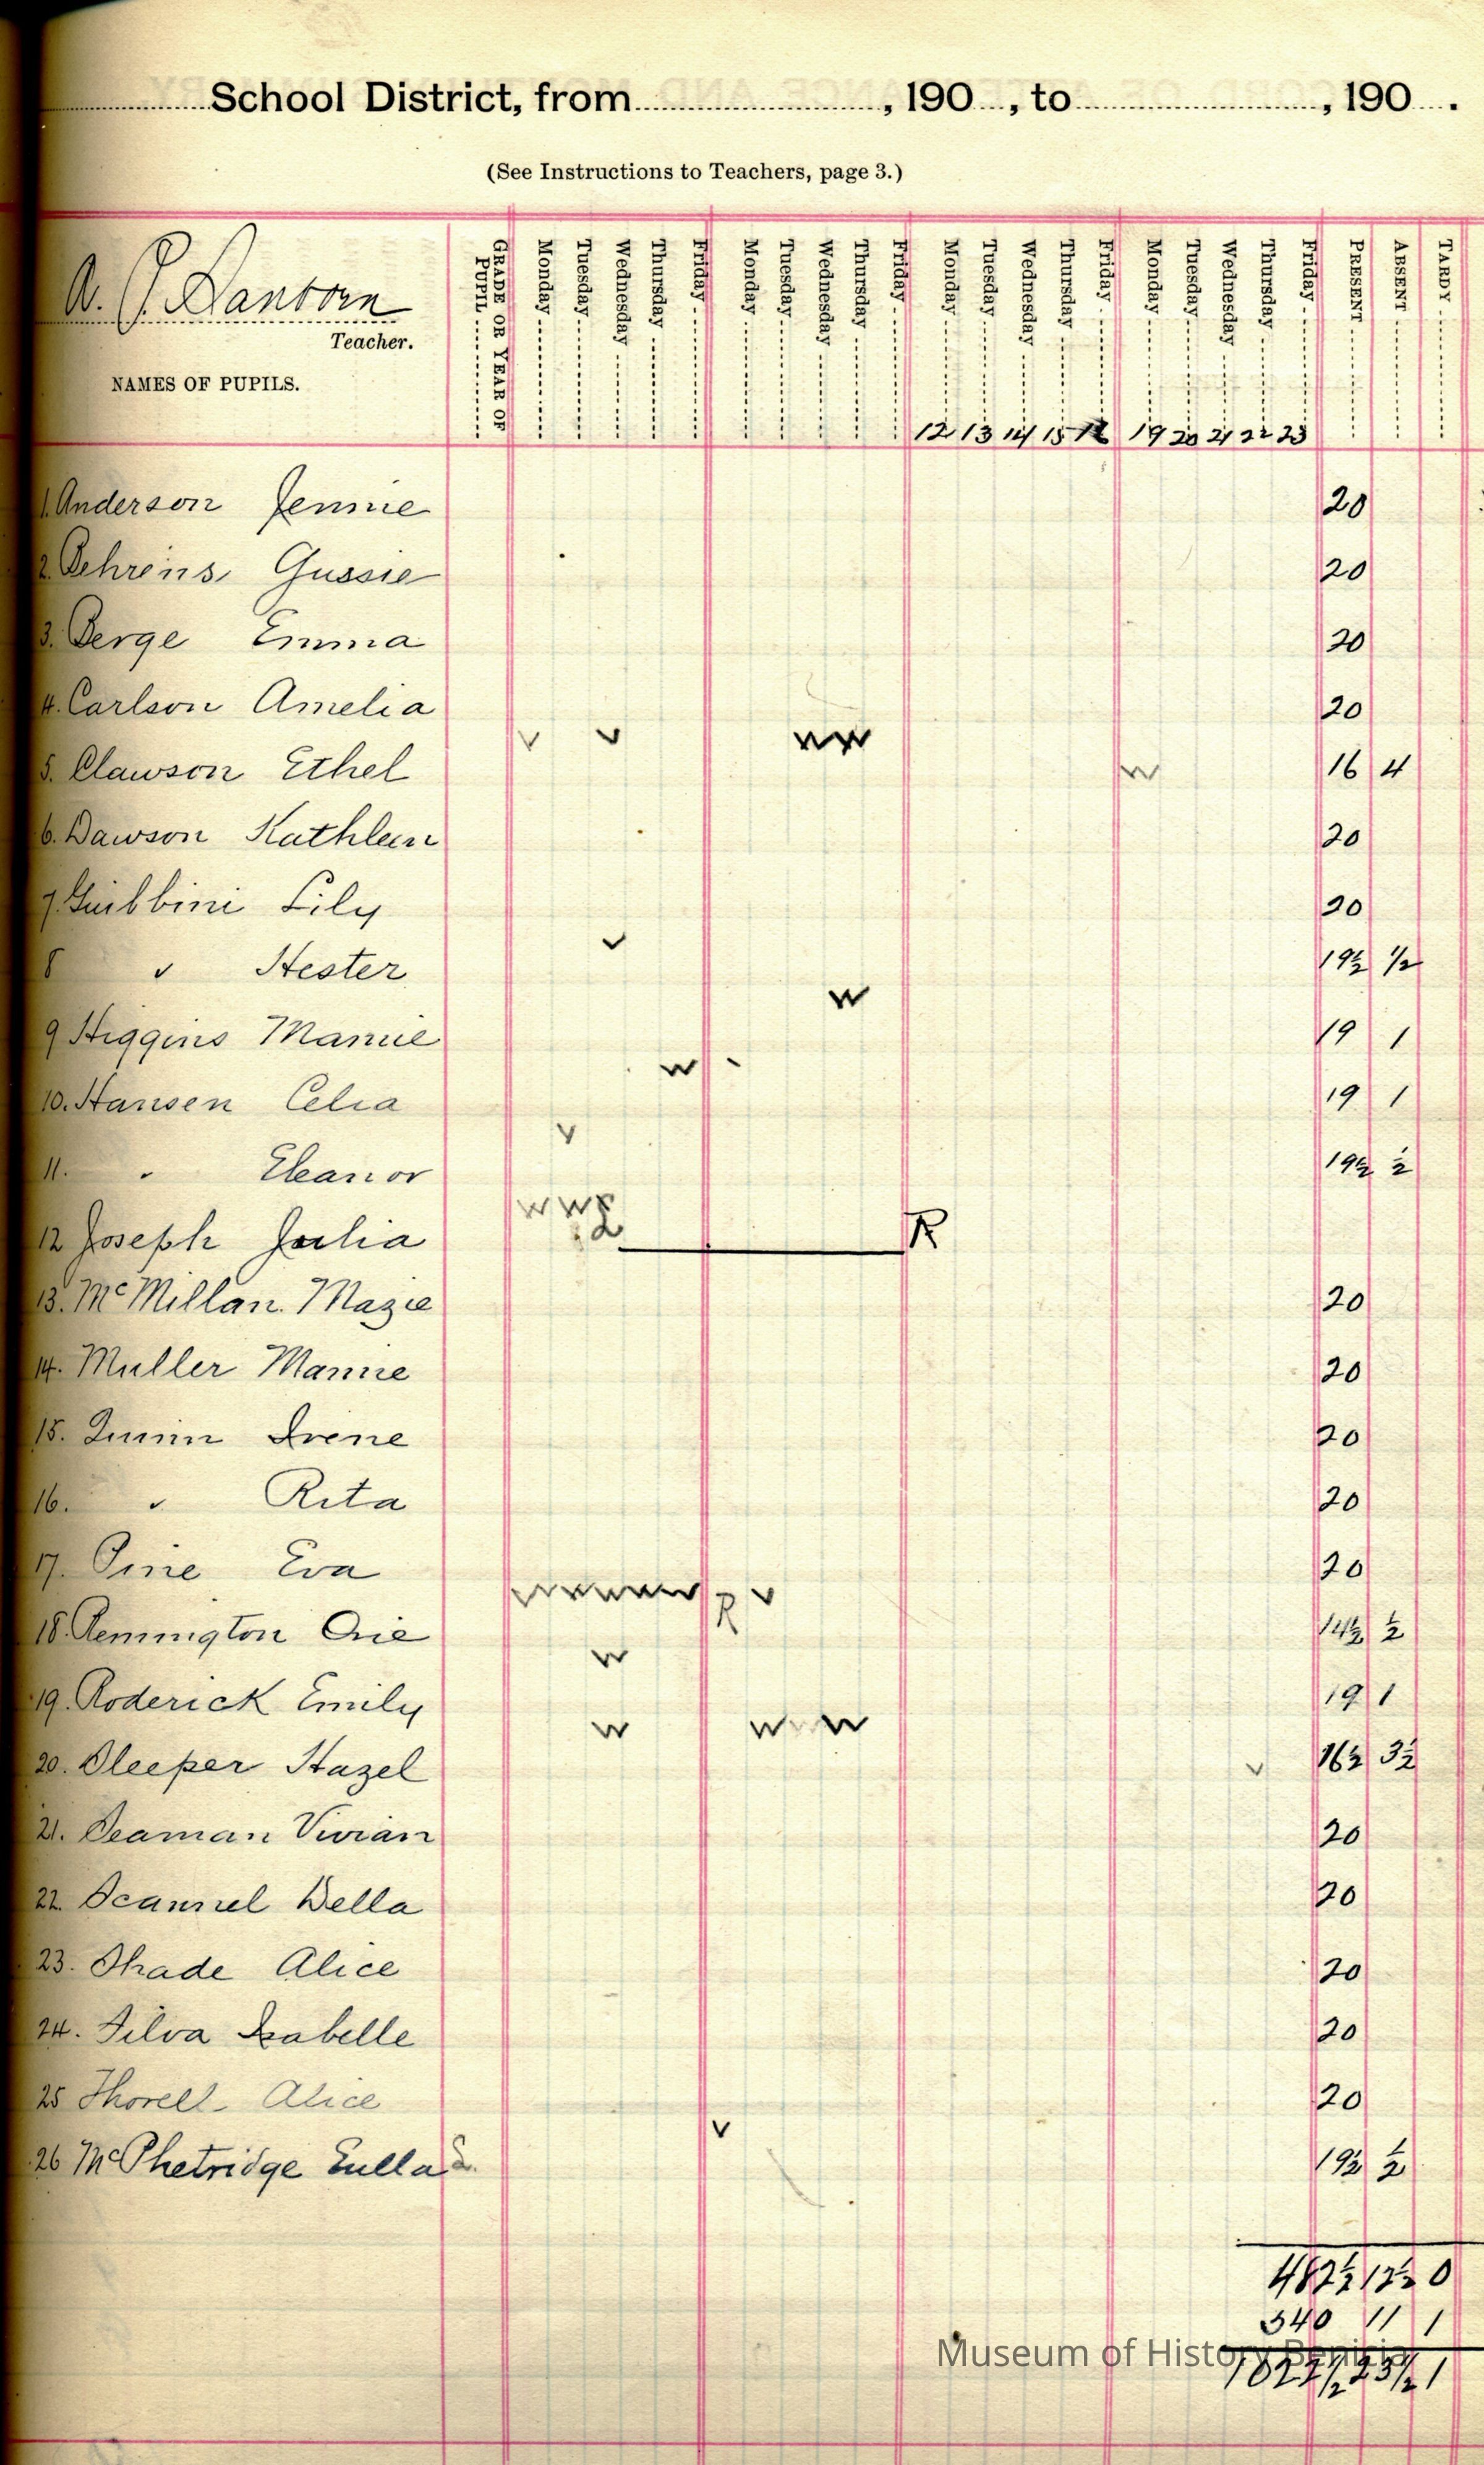 School District, from , 190 , to , 190 .
(See Instructions to Teachers, page 3.)
A. P. Sanborn
Teacher.
NAMES OF PUPILS.
GRADE OR YEAR OF PUPIL Monday Tuesday Wednesday Thursday Friday Monday Tuesday Wednesday Thursday Friday Monday Tuesday Wednesday Thursday Friday Monday Tuesday Wednesday Thursday Friday PRESENT ABSENT TARDY
12 13 14 15 19 20 21 22 23
1. Anderson Jennie 20
2. Behrens Gussie 20
3. Berge Emma 20
4. Carlson Amelia 20
5. Clawson Ethel v v w w w 16 4
6. Dawson Kathleen 20
7. Guibbini Lily 20
8 " Hester v 19½ ½
9 Higgins Mamie w 19 1
10. Hansen Celia w 19 1
11. " Eleanor v 19½ ½
12 Joseph Julia w w L R
13. McMillan Mazie 20
14. Muller Mamie 20
15. Quinn Irene 20
16. " Rita 20
17. Pine Eva 20
18. Remington Orie w w w w w R v 14½ ½
19. Roderick Emily w 19 1
20. Sleeper Hazel w w w w v 16½ 3½
21. Seaman Vivian 20
22. Scannel Della 20
23. Shade Alice 20
24. Silva Isabelle 20
25 Thorell Alice 20
26 McPhetridge Eulla v 19½ ½
482½ 12½ 0
540 11 1
1022½ 23½ 1
Museum of History Benicia